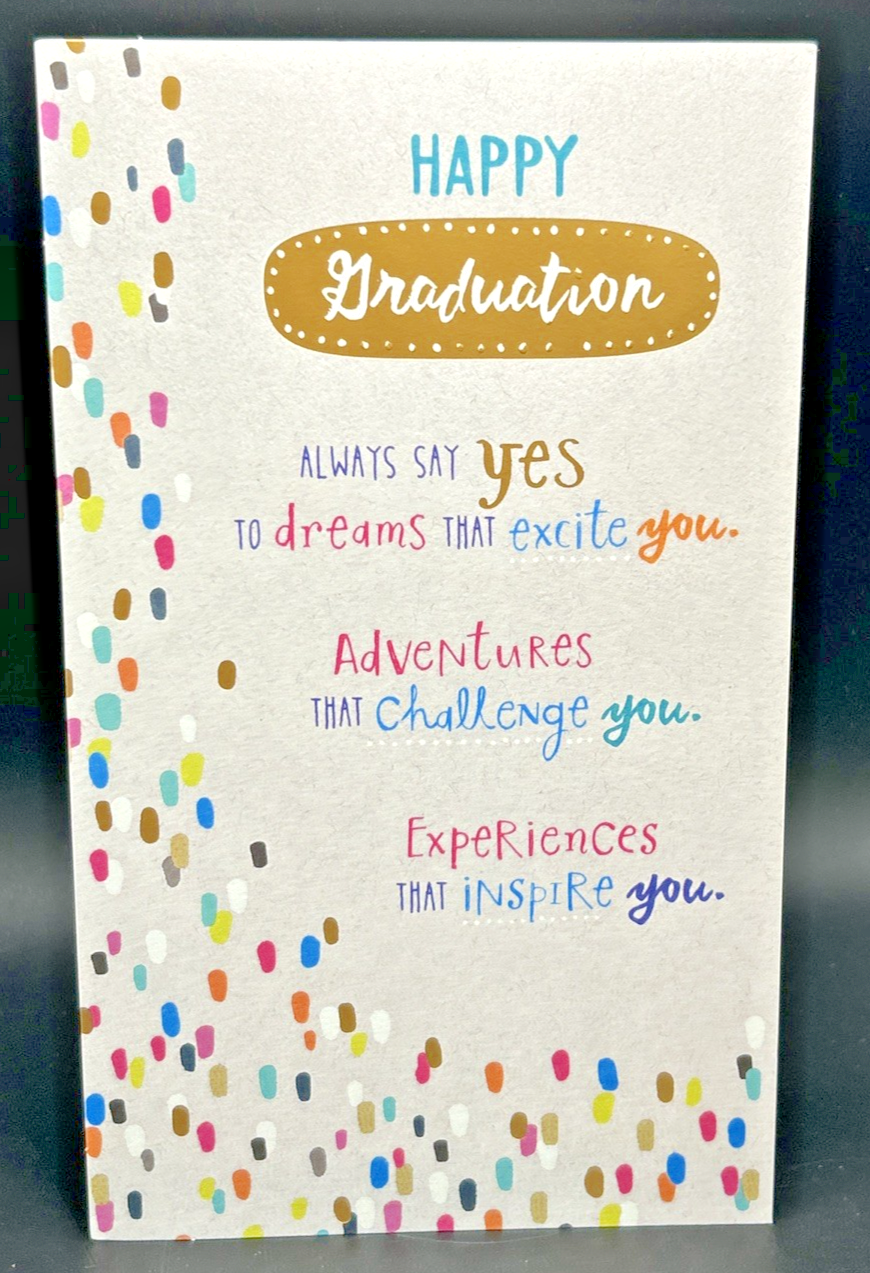 HAPPY
Graduation
ALWAYS SAY yes
TO dreams THAT excite you.
Adventures
THAT challenge you.
Experiences
THAT inspire you.